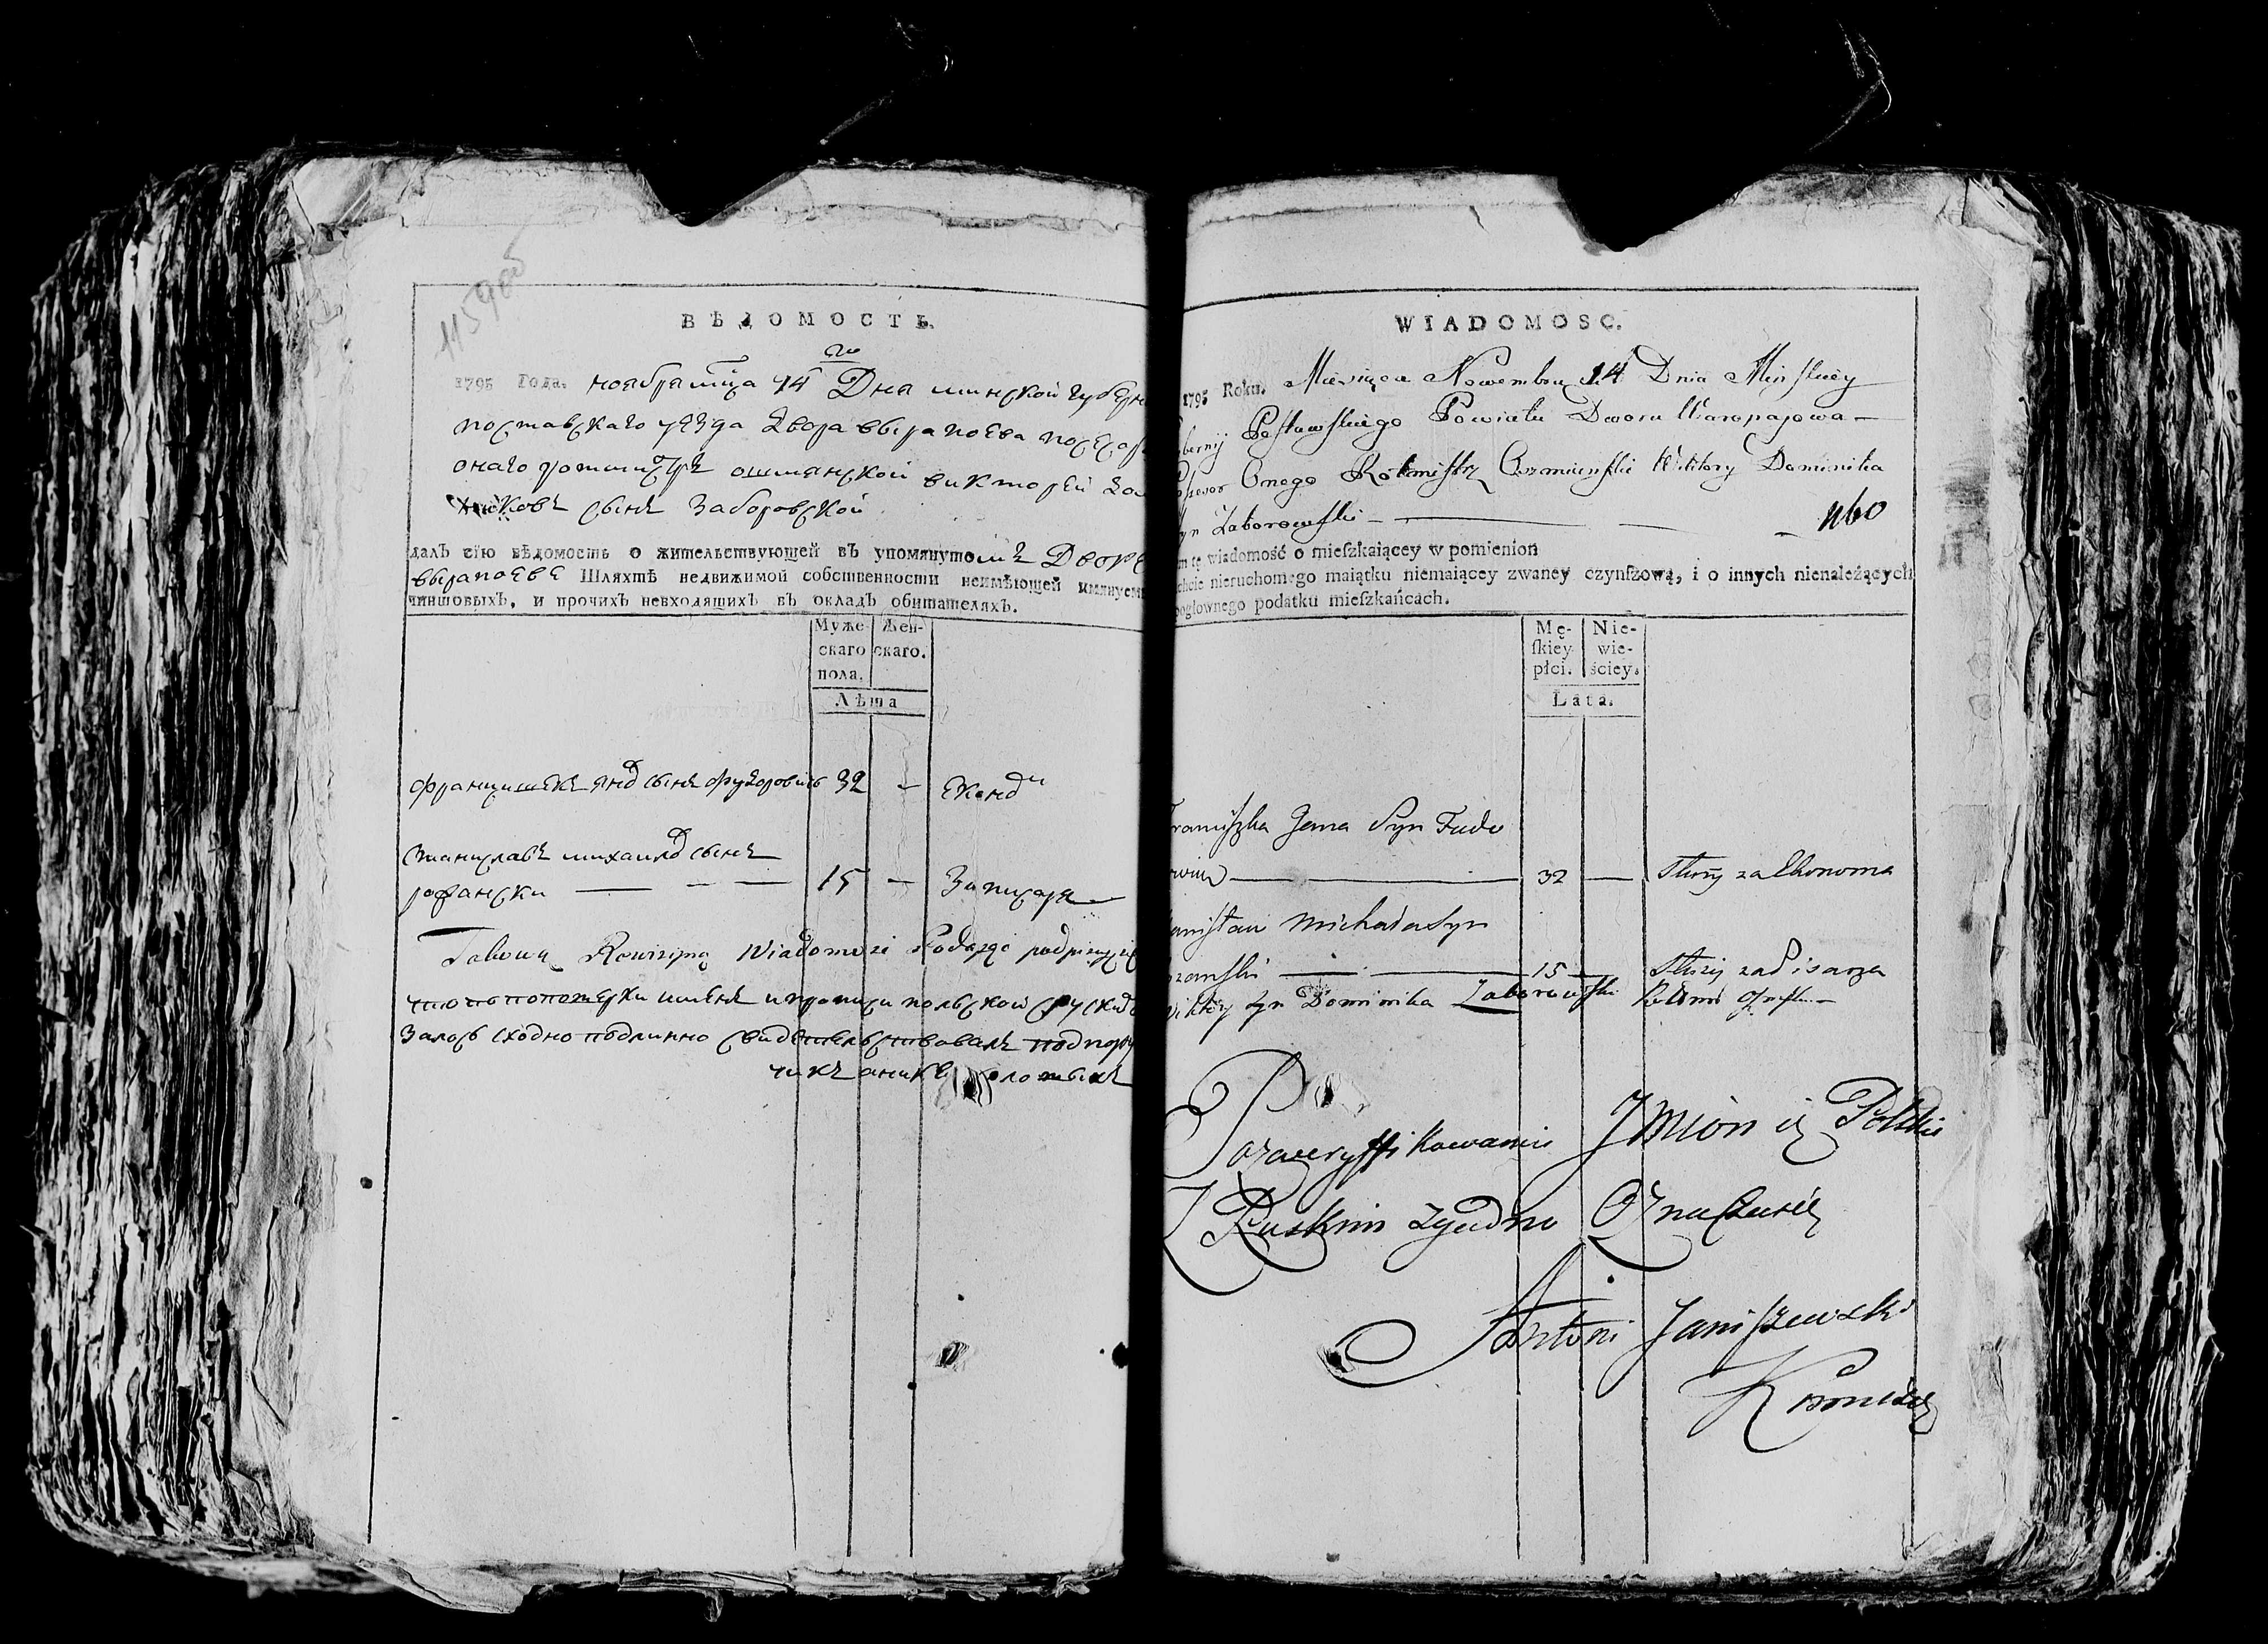 1159об
ВѢДОМОСТЬ.
1795 Года. ноября мца 14го Дня минской губерн
поставскаго уезда Двора вырапоева посесор
онаго ротмистръ ошмянской викторей
сынъ Заборовской
далъ сїю вѣдомость о жительствующей въ упомянутомъ Дворе
вырапоеве Шляхтѣ недвижимой собственности неимѣющей имянуем
чиншовыхъ, и прочихъ невходящихъ въ окладъ обитателяхъ.
Муже- Жен-
скаго скаго.
пола.
Лѣта
францишекъ янд сынъ фудоровичь 32 - Еконд
Станиславъ михаилд сынъ
рофански — — — 15 — За писаря
Takową Rewizyiną Wiadomosc Podaiąc podpisuię się
что по поповерки именъ и прописи польской с рускид
залось сходно подлинно свидетельствовалъ подпору
чикъ
WIADOMOSC.
1795 Roku. Miesiąca Nowembra 14 Dnia Minskiey
bernij Postawskiego Powiatu Dworu Waropajowa —
Onego Rotmistrz Oszmienski Wiktory Dominika
yn Zaborowski — — — 1160
m tę wiadomość o mieſzkaiącey w pomienion
chcie nieruchomego maiątku niemaiącey zwaney czynſzową, i o innych nienależących
pogłownego podatku mieſzkańcach.
Mę- Nie-
ſkiey wie-
płci. ściey.
Lata.
ranciszka Jana Syn Fudo
rowicz — 32 — Służy za Ekonoma
anisław Michała Syn
zanski — — 15 — Służy za Pisarza
Wiktory Syn Dominika Zaborowski Rotmi Oszm —
Po zaweryffikowaniu Jmion iż Polskie
Z Ruskim zgodno Oznaczaię
Antoni Janiszewski
Kommisarz